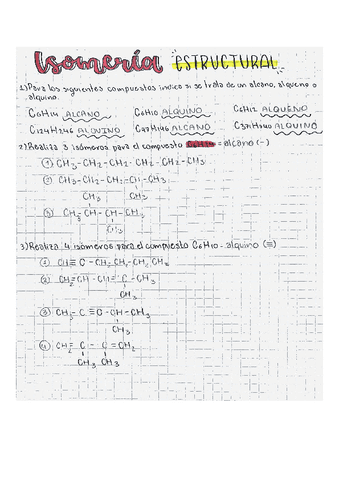 Isomería ESTRUCTURAL
1) Para los siguientes compuestos indica si se trata de un alcano, alqueno o
alquino.
C6H14 ALCANO C6H10 ALQUINO C6H12 ALQUENO
C124H246 ALQUINO ALCANO ALQUENO
2) Realiza 3 isómeros para el compuesto = alcano (-)
① CH3-CH2-CH2-CH2-CH2-CH3
② CH3-CH2-CH2-CH-CH3
CH3
③ CH3-CH-CH-CH3
CH3 CH3
3) Realiza 4 isómeros para el compuesto C6H10 - alquino (≡)
① CH≡C-CH2-CH2-CH2
② CH2=CH-CH=C-CH3
CH3
③ CH3-C≡C-CH-CH3
CH3
④ CH2=C-C=CH2
CH3 CH3